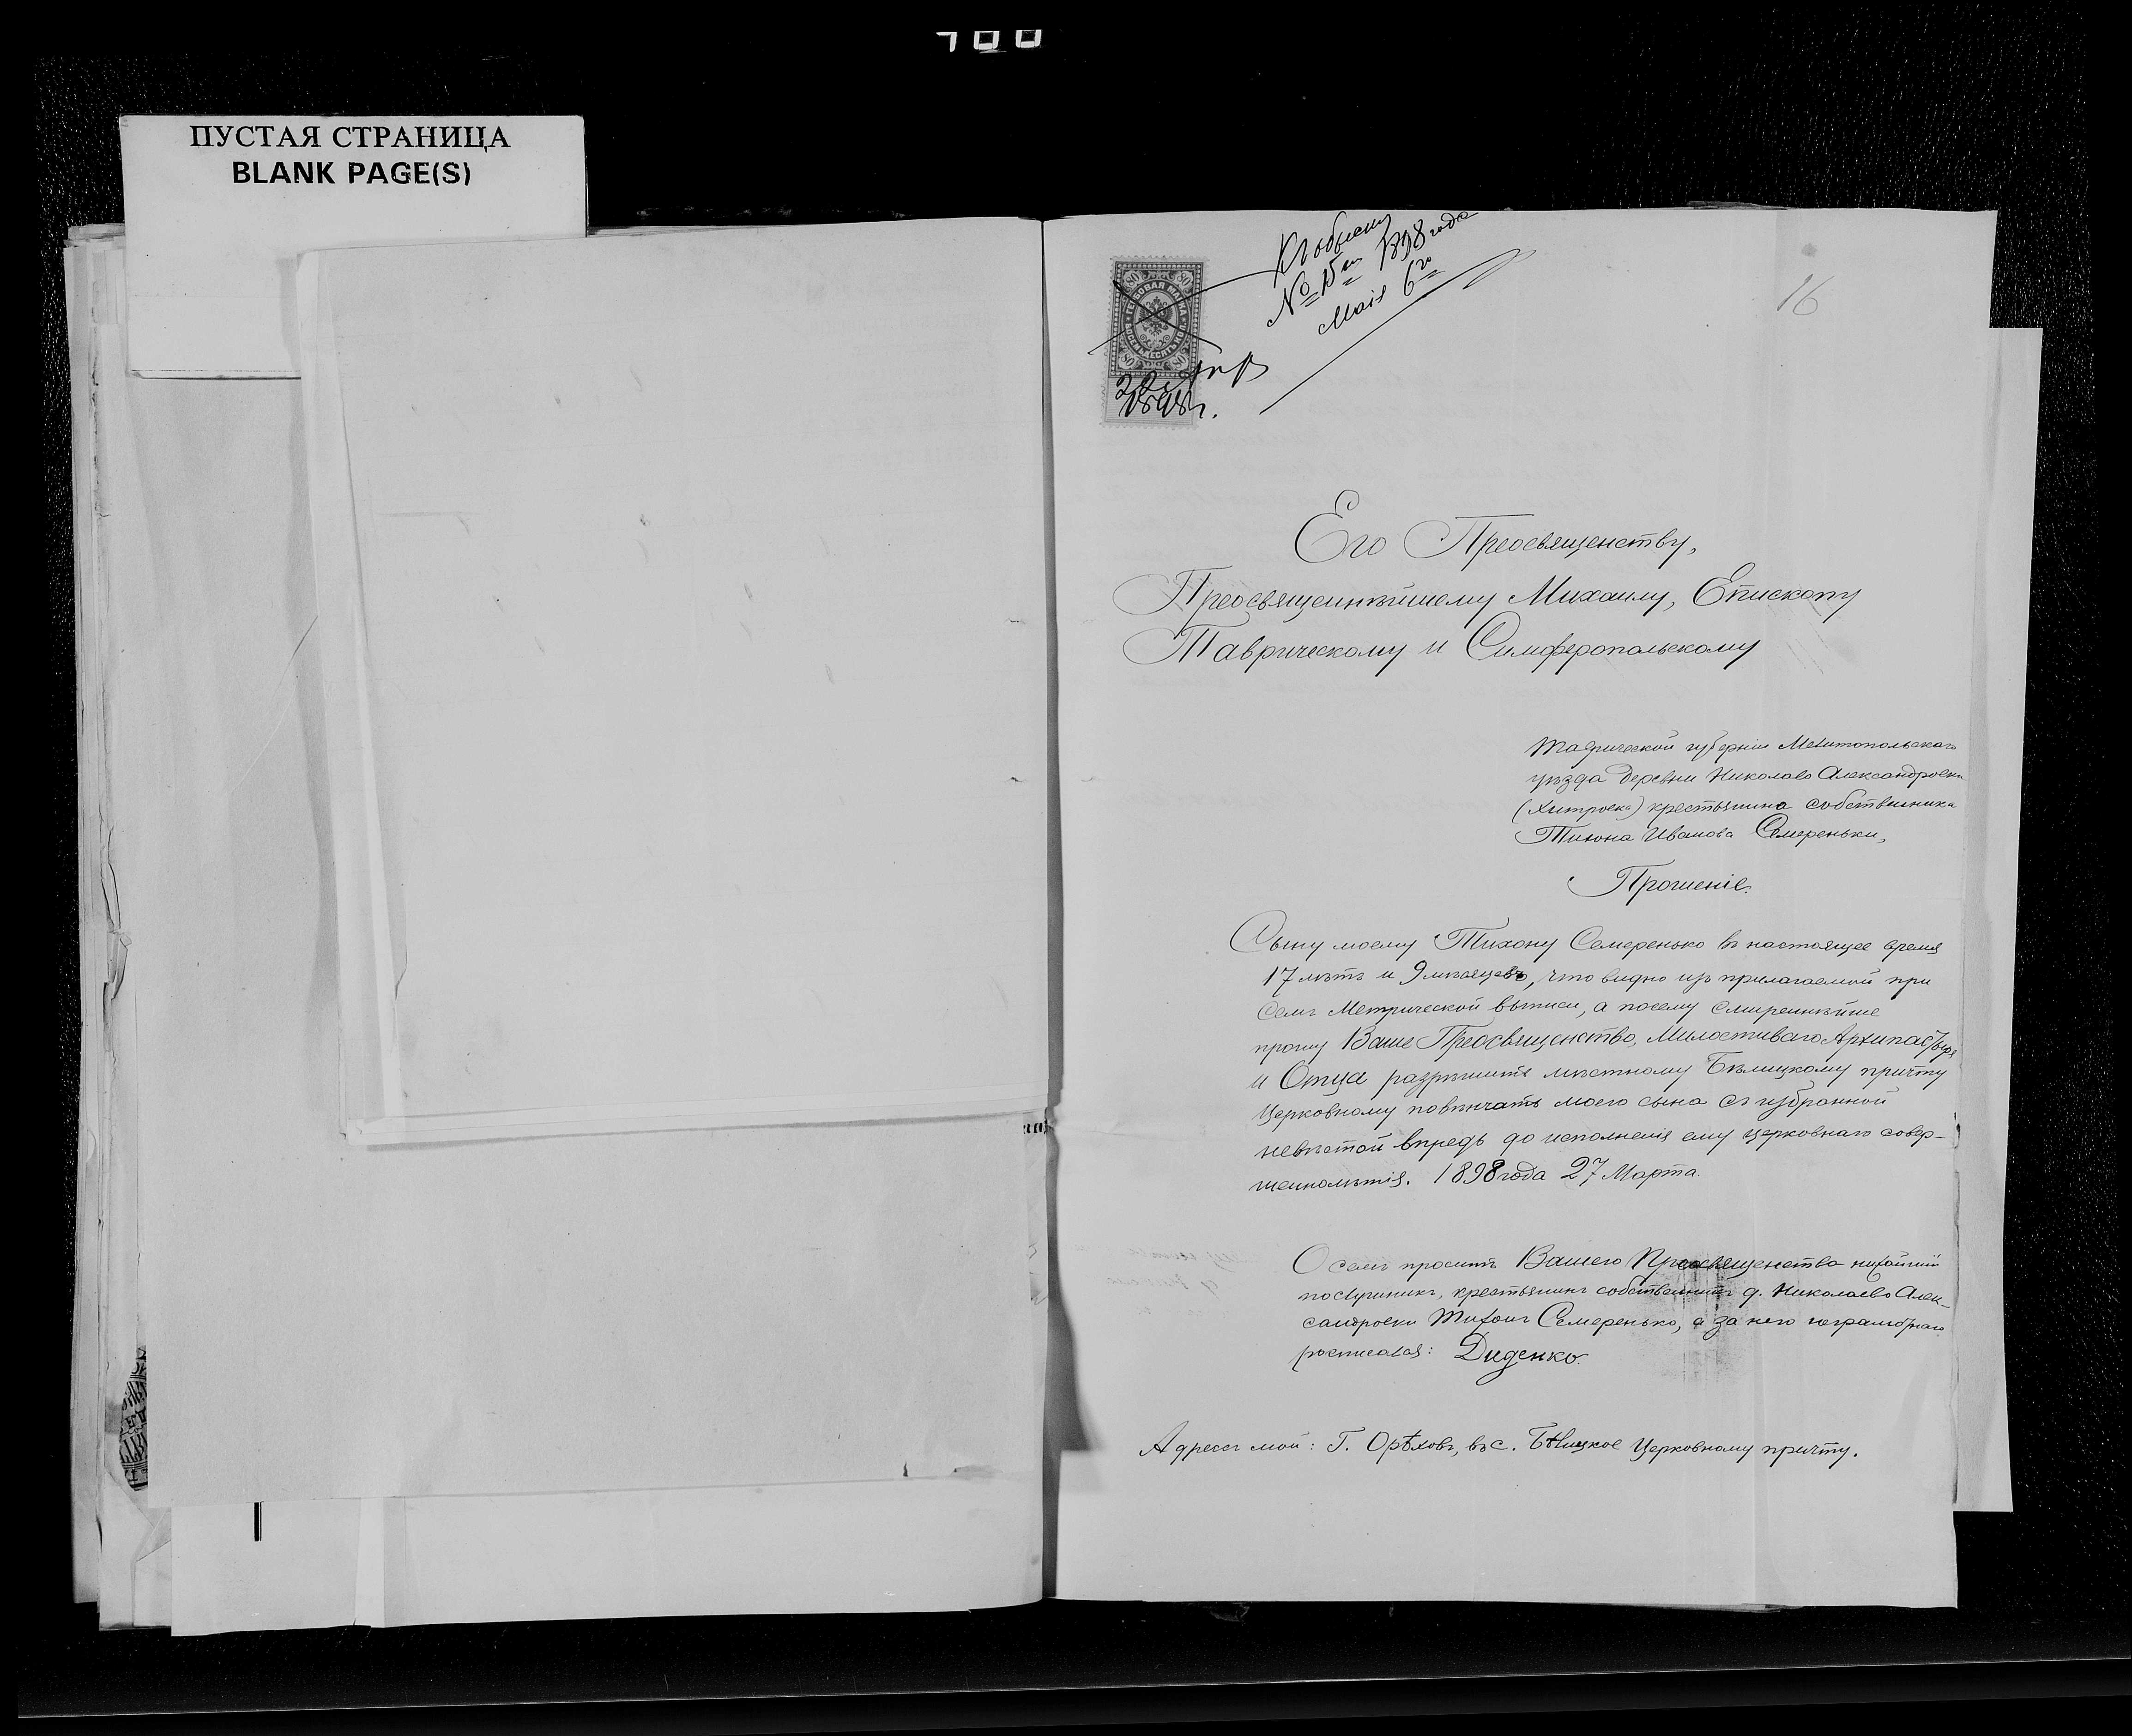 ПУСТАЯ СТРАНИЦА
BLANK PAGE(S)
Къ обыску
№ 15й 1898 года
Маія 6го
16
80 80
ГЕРБОВАЯ МАРКА
80 80
1898 г.
Его Преосвященству,
Преосвященнѣйшему Михаилу, Епископу
Таврическому и Симферопольскому
Таврической губерніи Мелитопольскаго
уѣзда деревни Николаво Александровки
(Хитровка) крестьянина собственника
Тихона Иванова Семереньки,
Прошеніе.
Сыну моему Тихону Семеренько въ настоящее время
17 лѣтъ и 9 мѣсяцевъ, что видно изъ прилагаемой при
семъ Метрической выписи, а посему смиреннѣйше
прошу Ваше Преосвященство, Милостиваго Архипастыря
и Отца разрѣшить мѣстному Бѣлицкому причту
Церковному повѣнчать моего сына съ избранной
невѣстой впредь до исполненія ему церковнаго совер-
шеннолѣтія. 1898 года 27 Марта.
О семъ проситъ Вашего Преосвященства нижайшій
послушникъ, крестьянинъ собственникъ д. Николаево Алек-
сандровки Тихонъ Семеренько, а за него неграмотнаго
росписался: Диденко.
Адресъ мой: Г. Орѣховъ, въ с. Бѣлицкое Церковному причту.